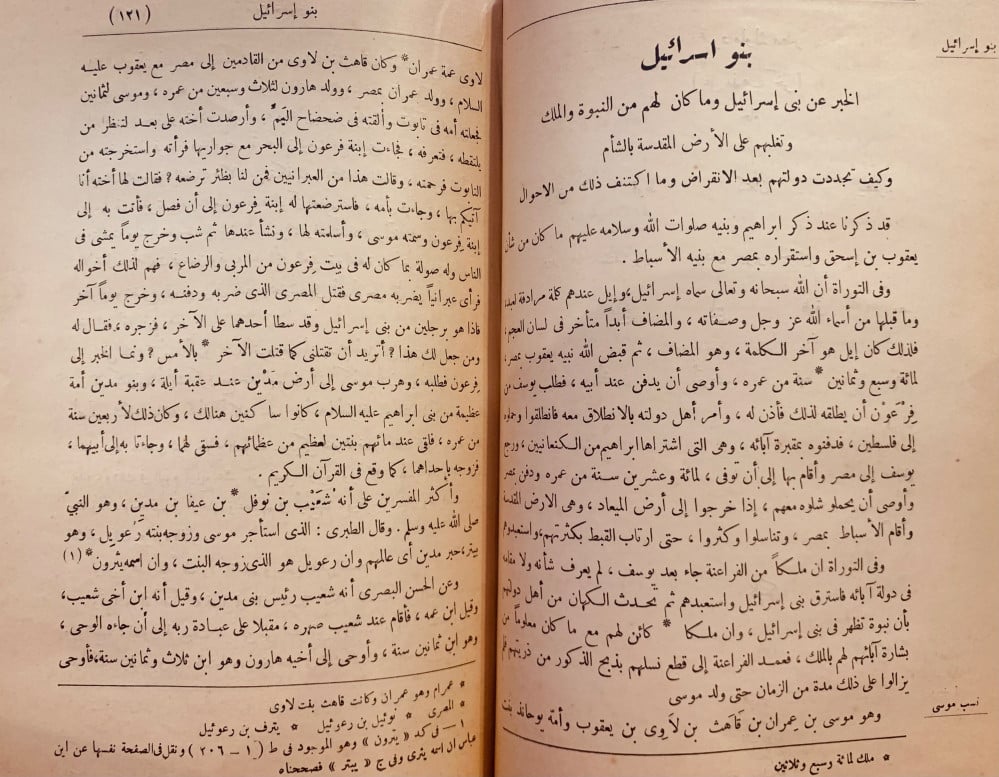 بنو إسرائيل
بنو اسرائيل
الخبر عن بنى إسرائيل وما كان لهم من النبوة والملك
وتغلبهم على الأرض المقدسة بالشأم
وكيف تجددت دولتهم بعد الانقراض وما اكتنف ذلك من الاحوال
قد ذكرنا عند ذكر ابراهيم وبنيه صلوات الله وسلامه عليهم ما كان من شأن
يعقوب بن إسحق واستقراره بمصر مع بنيه الأسباط .
وفى التوراة أن الله سبحانه وتعالى سماه إسرائيل، وإيل عندهم كلمة مرادفة لعبد،
وما قبلها من أسماء الله عز وجل وصفاته ، والمضاف أبداً متأخر فى لسان العجم،
فلذلك كان إيل هو آخر الكلمة ، وهو المضاف ، ثم قبض الله نبيه يعقوب بمصر،
لمائة وسبع وثمانين * سنة من عمره ، وأوصى أن يدفن عند أبيه ، فطلب يوسف من
فِرْعَوْن أن يطلقه لذلك فأذن له ، وأمر أهل دولته بالانطلاق معه فانطلقوا وحملوه
إلى فلسطين ، فدفنوه بمقبرة آبائه ، وهى التى اشتراها ابراهيم من الكنعانيين ، ورجع
يوسف إلى مصر وأقام بها إلى أن توفى ، لمائة وعشرين سنة من عمره ودفن بمصر
وأوصى أن يحملو شلوه معهم ، إذا خرجوا إلى أرض الميعاد ، وهى الارض المقدسة
وأقام الأسباط بمصر ، وتناسلوا وكثروا ، حتى ارتاب القبط بكثرتهم، واستعبدوهم
وفى التوراة ان ملكاً من الفراعنة جاء بعد يوسف ، لم يعرف شأنه ولا مقامه
فى دولة آبائه فاسترق بنى إسرائيل واستعبدهم ثم تحدث الكهان من أهل دولتهم
بأن نبوة تظهر فى بنى إسرائيل ، وان ملكا * كائن لهم مع ما كان معلوماً من
بشارة آبائهم لهم بالملك ، فعمد الفراعنة إلى قطع نسلهم بذبح الذكور من ذريتهم فلم
يزالوا على ذلك مدة من الزمان حتى ولد موسى
وهو موسى بن عِمران بن قَاهَث بن لَاوِى بن يعقوب وأمّه يوحانذ بنت
* ملك لمائة وسبع وثلاثين
نسب موسى
بنو إسرائيل
(١٢١)
لاوى عمة عمران * وكان قاهث بن لاوى من القادمين إلى مصر مع يعقوب عليه
السلام ، وولد عمران بمصر ، وولد هارون لثلاث وسبعين من عمره ، وموسى لثمانين
فجعلته أمه فى تابوت وألقته فى ضحضاح اليمّ ، وأرصدت أخته على بعد لتنظر من
يلتقطه ، فتعرفه ، فجاءت إبنة فرعون إلى البحر مع جواريها فرأته واستخرجته من
التابوت فرحمته ، وقالت هذا من العبرانيين فمن لنا بظئر ترضعه ؟ فقالت لها أخته أنا
آتيكم بها ، وجاءت بأمه ، فاسترضعتها له إبنة فرعون إلى أن فصل ، فأتت به إلى
إبنة فرعون وسمته موسى ، وأسلمته لها ، ونشأ عندها ثم شب وخرج يوماً يمشى فى
الناس وله صولة بما كان له فى بيت فرعون من المربى والرضاع ، فهم لذلك أخواله
فرأى عبرانياً يضربه مصرى فقتل المصرى الذى ضربه ودفنه ، وخرج يوماً آخر
فاذا هو برجلين من بنى إسرائيل وقد سطا أحدهما على الآخر ، فزجره ، فقال له
ومن جعل لك هذا ؟ أتريد أن تقتلنى كما قتلت الآخر * بالأمس ؟ ونما الخبر إلى
فرعون فطلبه ، وهرب موسى إلى أرض مَدْيَن عند عقبة أيلة ، وبنو مدين أمة
عظيمة من بنى ابراهيم عليه السلام ، كانوا ساكنين هنالك ، وكان ذلك لأربعين سنة
من عمره ، فلقى عند مائهم بنتين لعظيم من عظمائهم ، فسقى لهما ، وجاءتا به إلى أبيهما ،
فزوجه بإحداهما ، كما وقع فى القرآن الكريم .
وأكثر المفسرين على أنه شُعَيْب بن نوفل * بن عيفا بن مدين ، وهو النبيّ
صلى الله عليه وسلم . وقال الطبرى : الذى استأجر موسى وزوجه بنته رَعويل ، وهو
بيتر، حبر مدين أى عالمهم وان رعويل هو الذى زوجه البنت ، وان اسمه يثرون * (١)
وعن الحسن البصرى أنه شعيب رئيس بنى مدين ، وقيل أنه ابن أخى شعيب،
وقيل ابن عمه ، فأقام عند شعيب صهره ، مقبلا على عبادة ربه إلى أن جاءه الوحى ،
وهو ابن ثمانين سنة ، وأوحى إلى أخيه هارون وهو ابن ثلاث وثمانين سنة، فأوحى
* عمرام وهو عمران وكانت قاهث بنت لاوى
* المصرى * نوئيل بن رعوئيل * يترف بن رعوئيل
١ — فى كد « يترون » وهو الموجود فى ط ( ١ — ٢٠٦ ) ونقل فى الصفحة نفسها عن ابن
عباس ان اسمه يثرى وفى ج « يبتر » فصححناه